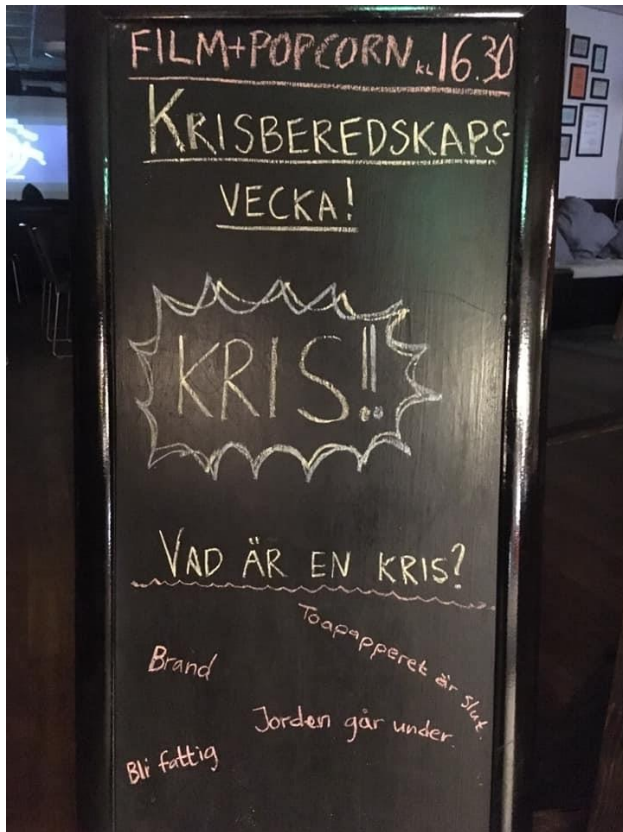 FILM+POPCORN KL 16.30
KRISBEREDSKAPS-
VECKA!
KRIS!!
VAD ÄR EN KRIS?
Toapapperet är slut.
Brand
Jorden går under.
Bli fattig